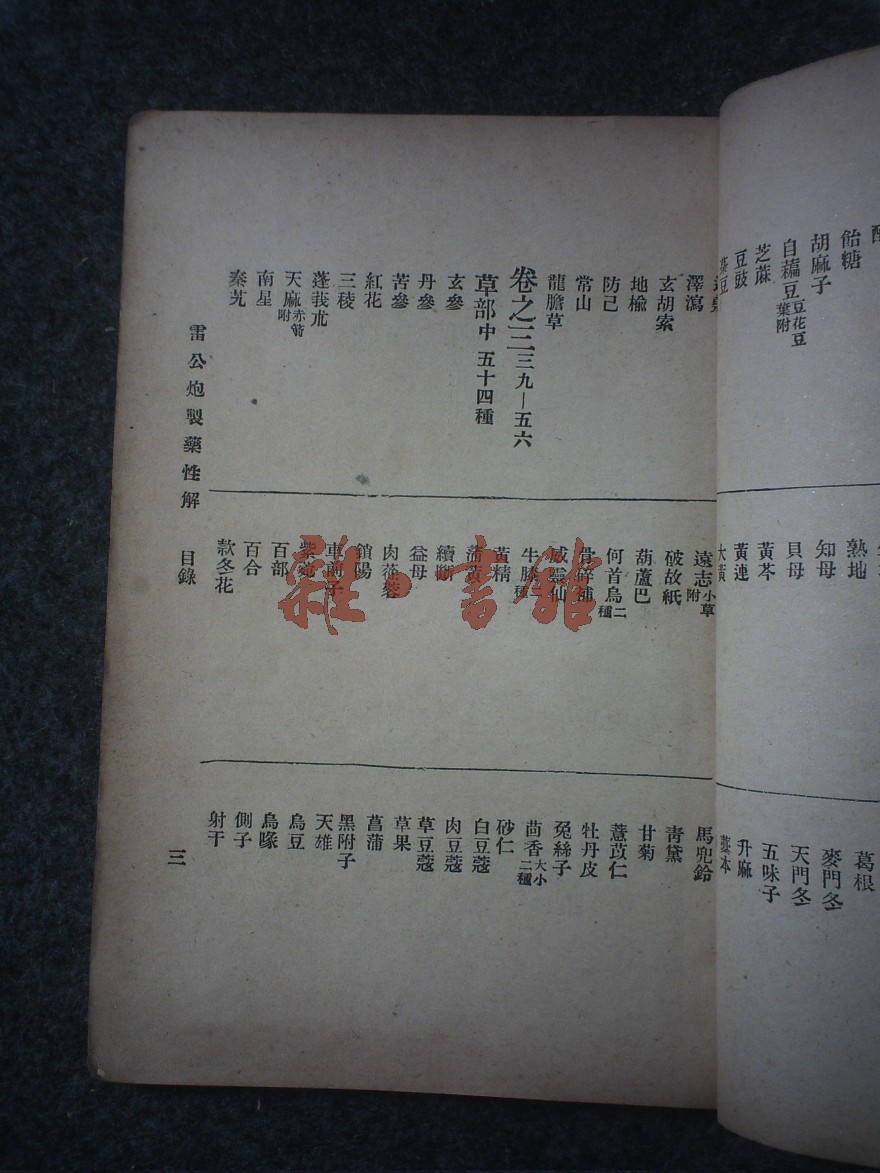 飴糖
胡麻子
自藊豆豆花豆葉附
芝蔴
豆豉
熟地
知母
貝母
黃芩
黃連
大黃
葛根
麥門冬
天門冬
五味子
升麻
藁本
澤瀉
玄胡索
地榆
防己
常山
龍膽草
卷之三 三九—五六
草部中 五十四種
玄參
丹參
苦參
紅花
三稜
蓬莪朮
天麻赤箭附
南星
秦艽
遠志小草附
破故紙
葫蘆巴
何首烏二種
骨碎補
威靈仙
牛膝二種
黃精
蒲黃
續斷
益母
肉蓯蓉
鎖陽
車前子
紫菀
百部
百合
款冬花
馬兜鈴
青黛
甘菊
薏苡仁
牡丹皮
兔絲子
茴香大小二種
砂仁
白豆蔻
肉豆蔻
草豆蔻
草果
菖蒲
黑附子
天雄
烏豆
烏喙
側子
射干
雷公炮製藥性解 目錄
三
雜·書館